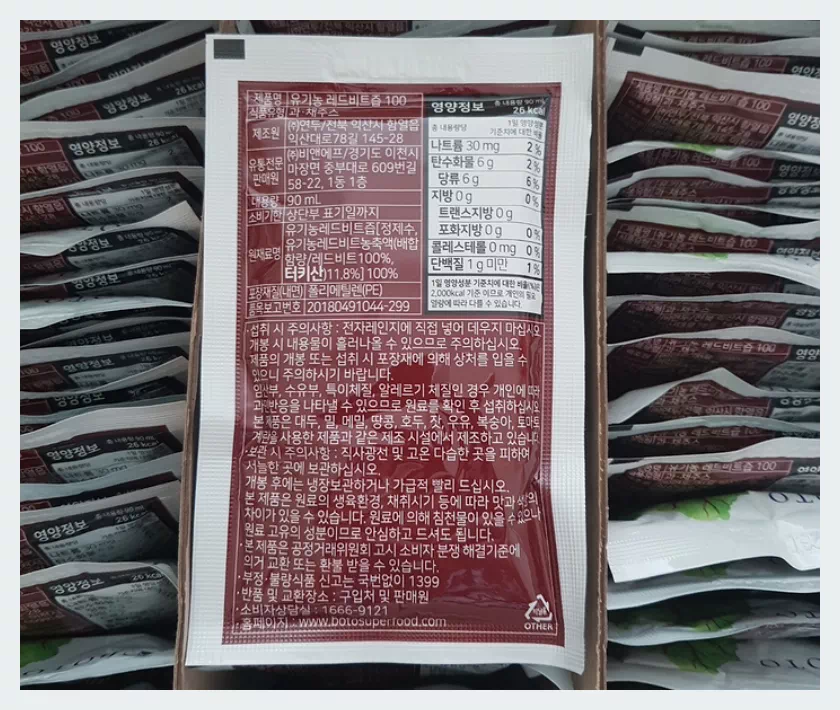 제품명 유기농 레드비트즙 100
식품유형 과·채주스
제조원 ㈜연두/전북 익산시 함열읍
익산대로78길 145-28
유통전문
판매원
㈜비앤에프/경기도 이천시
마장면 중부대로 609번길
58-22, 1동 1층
내용량 90 mL
소비기한 상단부 표기일까지
원재료명
유기농레드비트즙[정제수,
유기농레드비트농축액(배합
함량/레드비트100%,
터키산)11.8%]100%
포장재질(내면) 폴리에틸렌(PE)
품목보고번호 20180491044-299
영양정보
총 내용량 90 mL
26 kcal
총 내용량당
1일 영양성분
기준치에 대한 비율
나트륨 30 mg 2 %
탄수화물 6 g 2 %
당류 6 g 6 %
지방 0 g 0 %
트랜스지방 0 g
포화지방 0 g 0 %
콜레스테롤 0 mg 0 %
단백질 1 g 미만 1 %
1일 영양성분 기준치에 대한 비율(%)은
2,000kcal 기준 이므로 개인의 필요
열량에 따라 다를 수 있습니다.
·섭취 시 주의사항 : 전자레인지에 직접 넣어 데우지 마십시오.
개봉 시 내용물이 흘러나올 수 있으므로 주의하십시오.
제품의 개봉 또는 섭취 시 포장재에 의해 상처를 입을 수
있으니 주의하시기 바랍니다.
임산부, 수유부, 특이체질, 알레르기 체질인 경우 개인에 따라
과민반응을 나타낼 수 있으므로 원료를 확인 후 섭취하십시오.
·본 제품은 대두, 밀, 메밀, 땅콩, 호두, 잣, 우유, 복숭아, 토마토,
계란을 사용한 제품과 같은 제조 시설에서 제조하고 있습니다.
·보관 시 주의사항 : 직사광선 및 고온 다습한 곳을 피하여
서늘한 곳에 보관하십시오.
개봉 후에는 냉장보관하거나 가급적 빨리 드십시오.
·본 제품은 원료의 생육환경, 채취시기 등에 따라 맛과 색의
차이가 있을 수 있습니다. 원료에 의해 침전물이 있을 수 있으나
원료 고유의 성분이므로 안심하고 드셔도 됩니다.
·본 제품은 공정거래위원회 고시 소비자 분쟁 해결기준에
의거 교환 또는 환불 받을 수 있습니다.
·부정·불량식품 신고는 국번없이 1399
·반품 및 교환장소 : 구입처 및 판매원
·소비자상담실 : 1666-9121
·홈페이지 : www.botosuperfood.com
OTHER